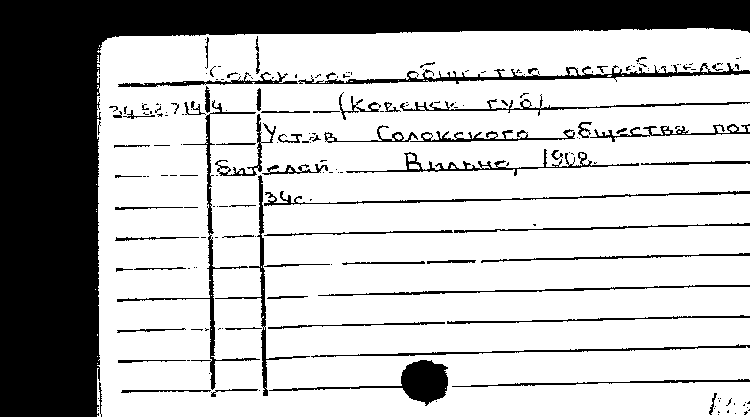 Солокское общество потребителей
34.52.7.14/4 (Ковенск губ)
Устав Солокского общества пот
бителей Вильно, 1908.
34с.